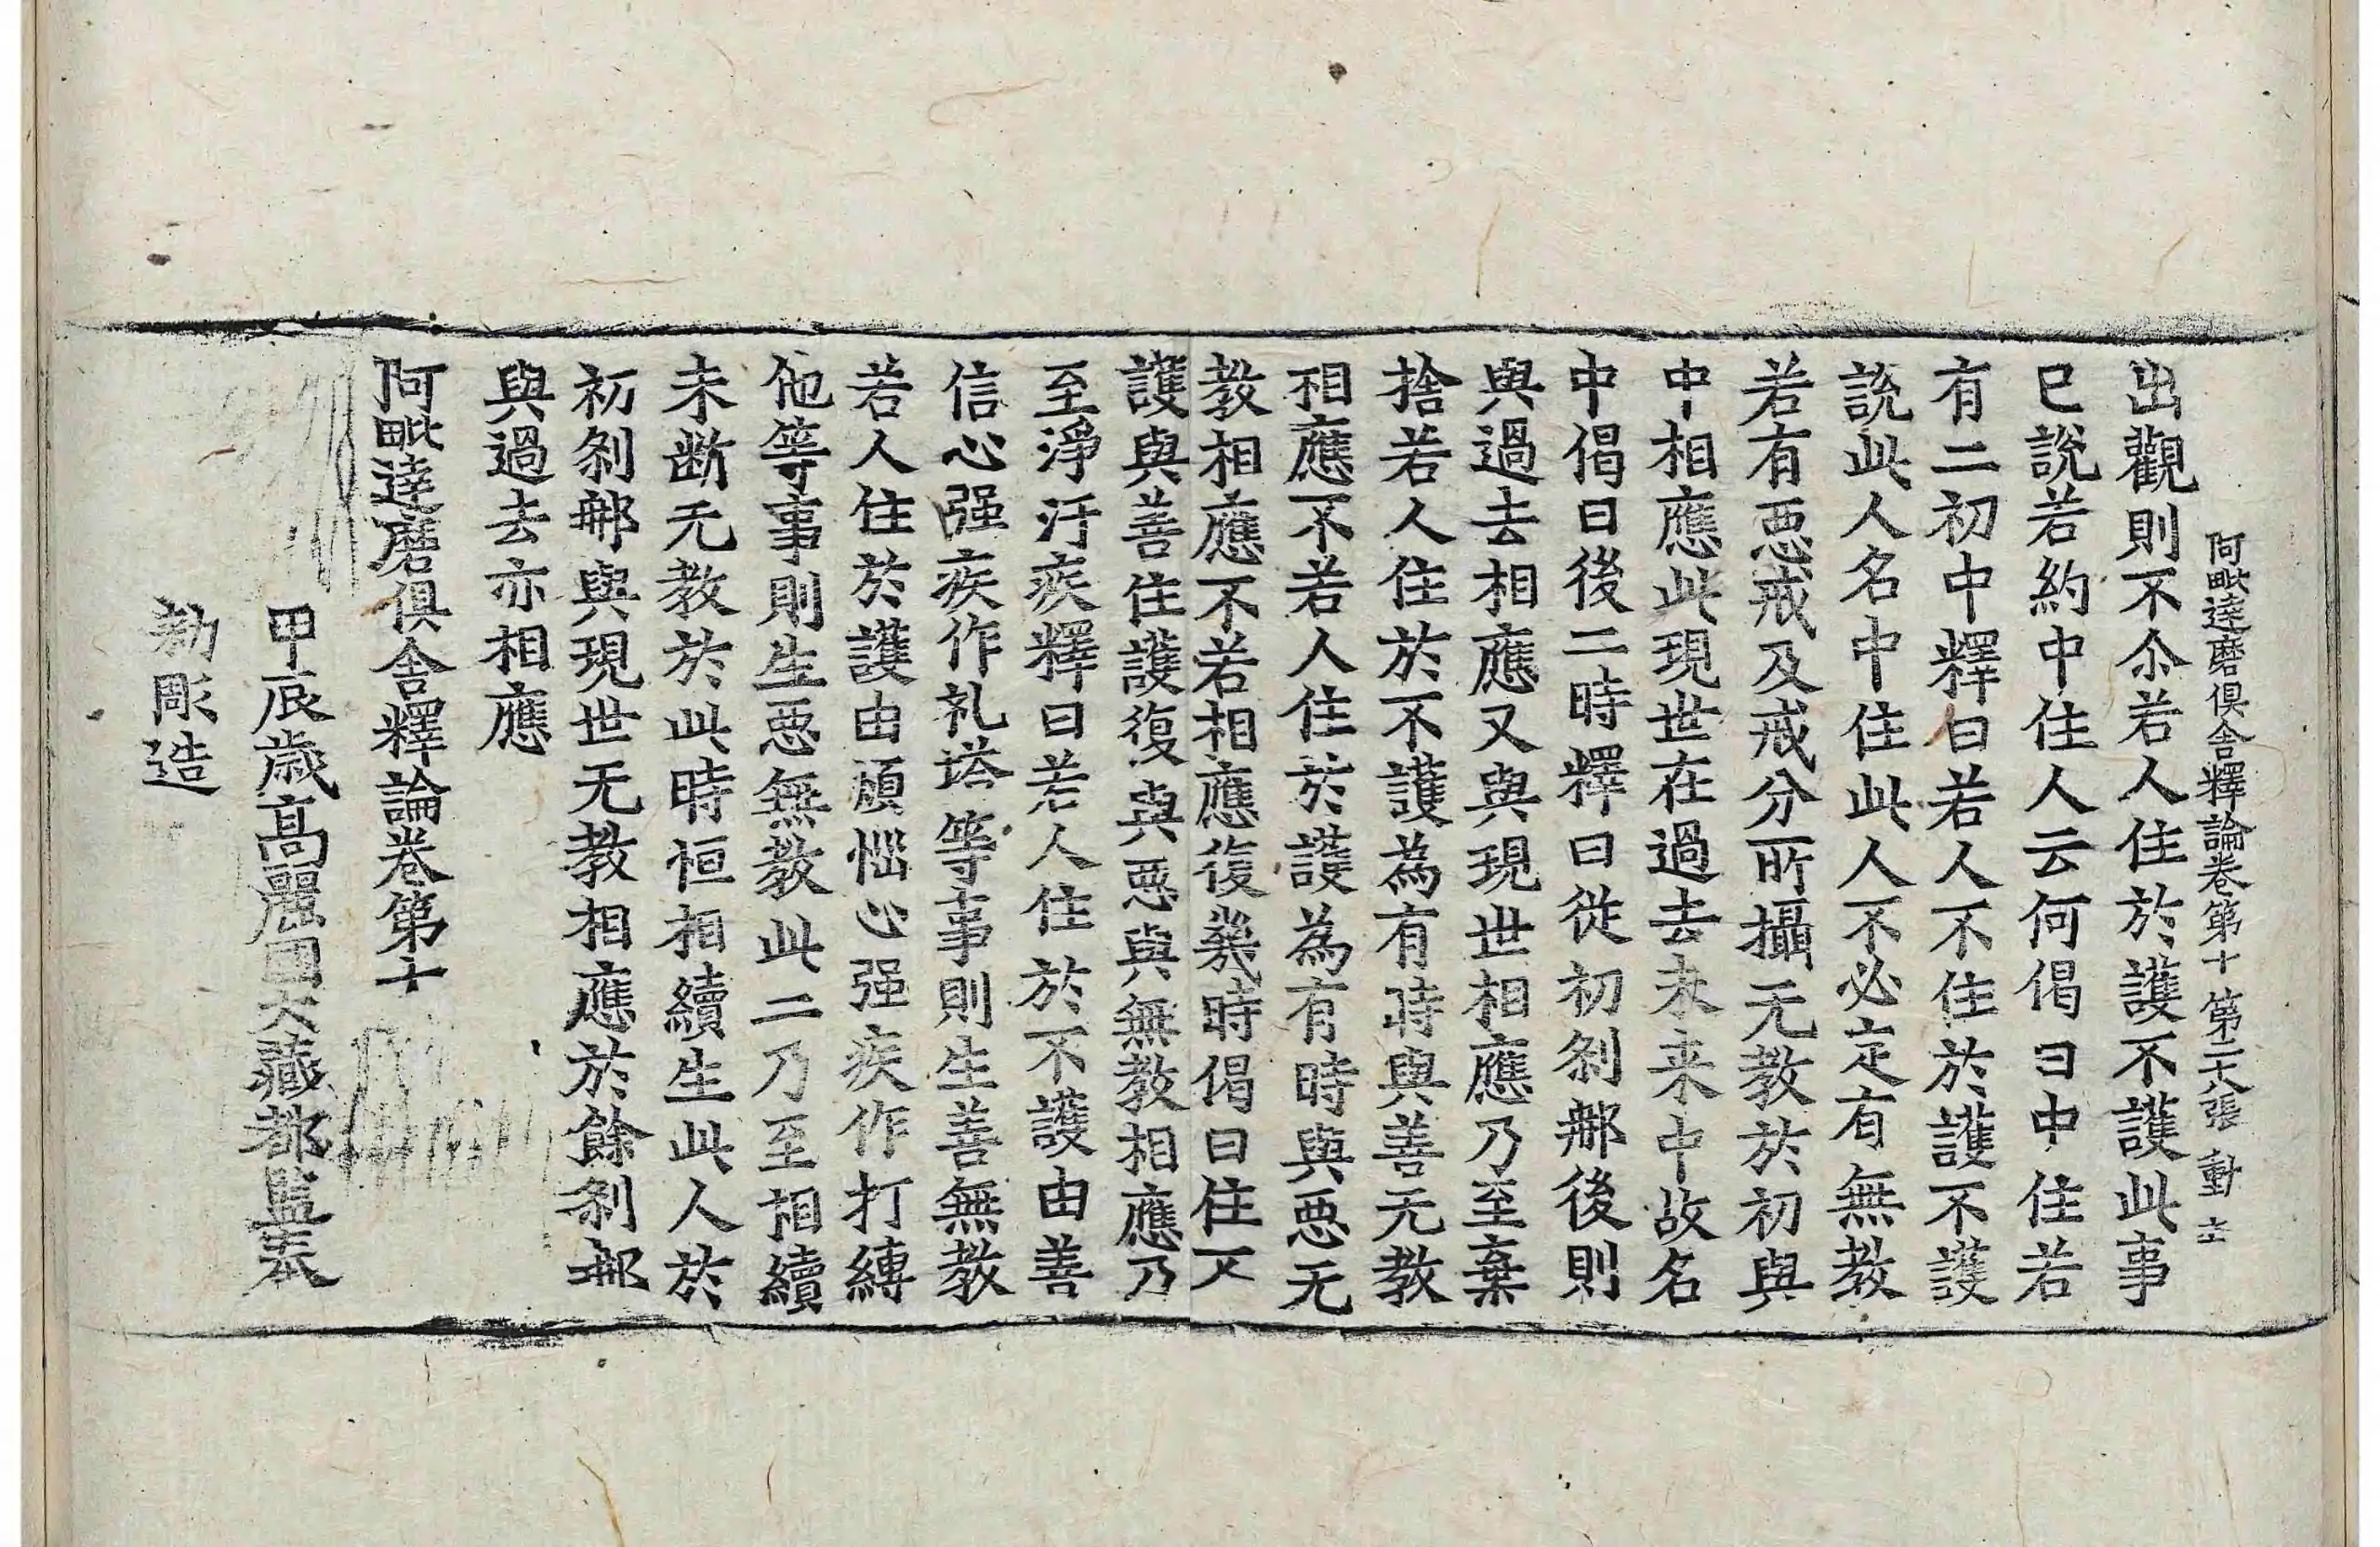 阿毗達磨俱舍釋論卷第十 第二十八張 動
出觀則不尒若人住於護不護此事
已說若約中住人云何偈曰中住若
有二初中釋曰若人不住於護不護
說此人名中住此人不必定有無教
若有惡戒及戒分所攝无教於初與
中相應此現世在過去未来中故名
中偈曰後二時釋曰從初刹那後則
與過去相應又與現世相應乃至棄
捨若人住於不護為有時與善无教
相應不若人住於護為有時與惡无
教相應不若相應復幾時偈曰住不
護與善住護復與惡與無教相應乃
至淨汙疾釋曰若人住於不護由善
信心强疾作礼塔等事則生善無教
若人住於護由煩惱心强疾作打縛
他等事則生惡無教此二乃至相續
未断无教於此時恒相續生此人於
初刹那與現世无教相應於餘刹那
與過去亦相應
阿毗達磨俱舍釋論卷第十
甲辰歲高麗國大藏都監奉
勅彫造